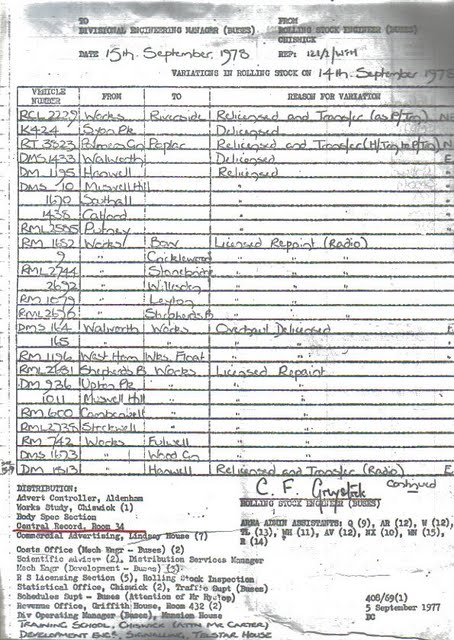 TO FROM
DIVISIONAL ENGINEERING MANAGER (BUSES) ROLLING STOCK ENGINEER (BUSES)
CHISWICK
DATE 15th. September, 1978 REF:
VARIATIONS IN ROLLING STOCK ON 14th. September 1978
VEHICLE NUMBER FROM TO REASON FOR VARIATION
RCL 2229 Works Riverside Relicensed and Transfer (as P/Trg)
K424 Syon Pk Delicensed
RT 3823 Palmers Grn Poplar Relicensed and Transfer (H/Trg to P/Trg)
DMS 1433 Walworth Delicensed E
DM 1195 Hanwell Relicensed
DMS 10 Muswell Hill "
1670 Southall "
1438 Catford "
RML 2585 Putney "
RM 1682 Works Bow Licensed Repaint (Radio)
9 " Cricklewood " "
RML 2744 " Stonebridge " "
2692 " Willesden " "
RM 1079 " Leyton " "
RML 2676 " Shepherds B " "
DMS 164 Walworth Works Overhaul Delicensed E
165 " " " "
RM 1196 West Ham Wks. Float " "
RML 2681 Shepherds B Works Licensed Repaint
DM 936 Upton Pk " " "
1011 Muswell Hill " " "
RM 600 Camberwell " " "
RML 2738 Stockwell " " "
RM 742 Works Fulwell " "
DMS 1673 " Wood Grn " "
DM 1813 " Hanwell Relicensed and Transfer (Radio) E
Continued
DISTRIBUTION:
Advert Controller, Aldenham
Works Study, Chiswick (1)
Body Spec Section
Central Record, Room 34
Commercial Advertising, Lindsey House (7)
Costs Office (Mech Engr - Buses) (2)
Scientific Adviser (2), Distribution Services Manager
Mech Engr (Development - Buses) (3)
R S Licensing Section (5), Rolling Stock Inspection
Statistical Office, Chiswick (2), Traffic Supt (Buses)
Schedules Supt - Buses (Attention of Mr Hyslop)
Revenue Office, Griffith House, Room 432 (2)
Div Operating Manager (Buses), Mansion House
TRAINING SCHOOL, CHISWICK (ATTN: MR. CARTER)
DEVELOPMENT SIGNALLING, TELSTAR HOUSE
ROLLING STOCK ENGINEER (BUSES)
AREA ADMIN ASSISTANTS: Q (9), AR (12), W (12),
TL (13), WH (11), AV (12), NX (10), WN (15),
R (14)
408/69(1)
5 September 1977